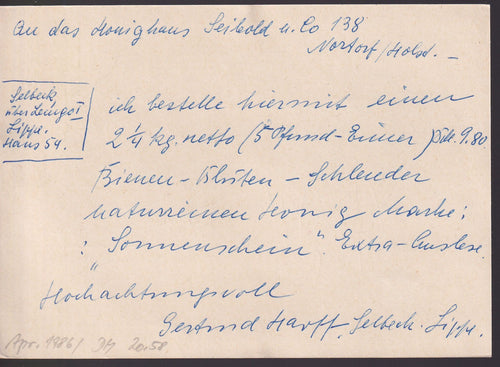 An das Honighaus Seibold u. Co 138
Nortorf/Holst. –
Selbeck
über Lemgo I
Lippe.
Haus 54.
ich bestelle hiermit einen
2 1/4 kg. netto (5 Pfund-Eimer) 9.80
Bienen-Blüten-Schleuder
naturreinen Honig Marke:
: "Sonnenschein". Extra-Auslese.
Hochachtungsvoll
Gertrud Harff, Selbeck. Lippe.
Apr. 1986/ 20.58